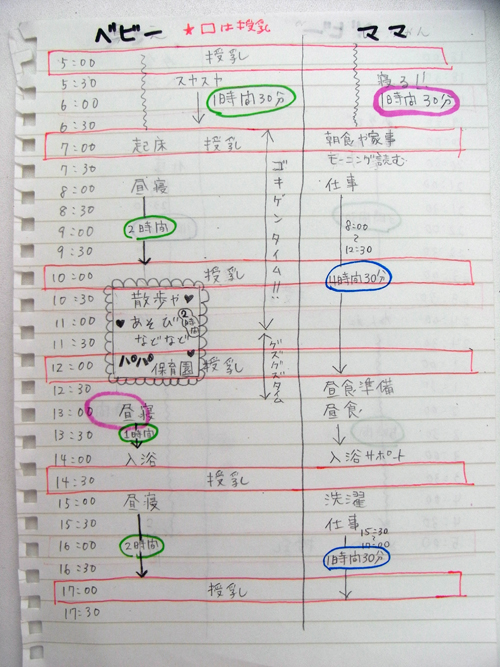 ベビー ★□は授乳 ママ
5:00 授乳
5:30 スヤスヤ 寝る!!
6:00 1時間30分 1時間30分
6:30
7:00 起床 授乳 朝食や家事
7:30 モーニング読む
8:00 昼寝 仕事
8:30
9:00 2時間 8:00
〜
9:30 12:30
ゴキゲンタイム!!
10:00 授乳 4時間30分
10:30 散歩や♥
11:00 ♥あそび 2時間
11:30 などなど
グズグズタイム
12:00 パパ保育園 授乳
12:30 昼食準備
13:00 昼寝 昼食
13:30 1時間
14:00 入浴 入浴サポート
14:30 授乳
15:00 昼寝 洗濯
15:30 仕事 15:30
〜
16:00 2時間 17:00
16:30 1時間30分
17:00 授乳
17:30